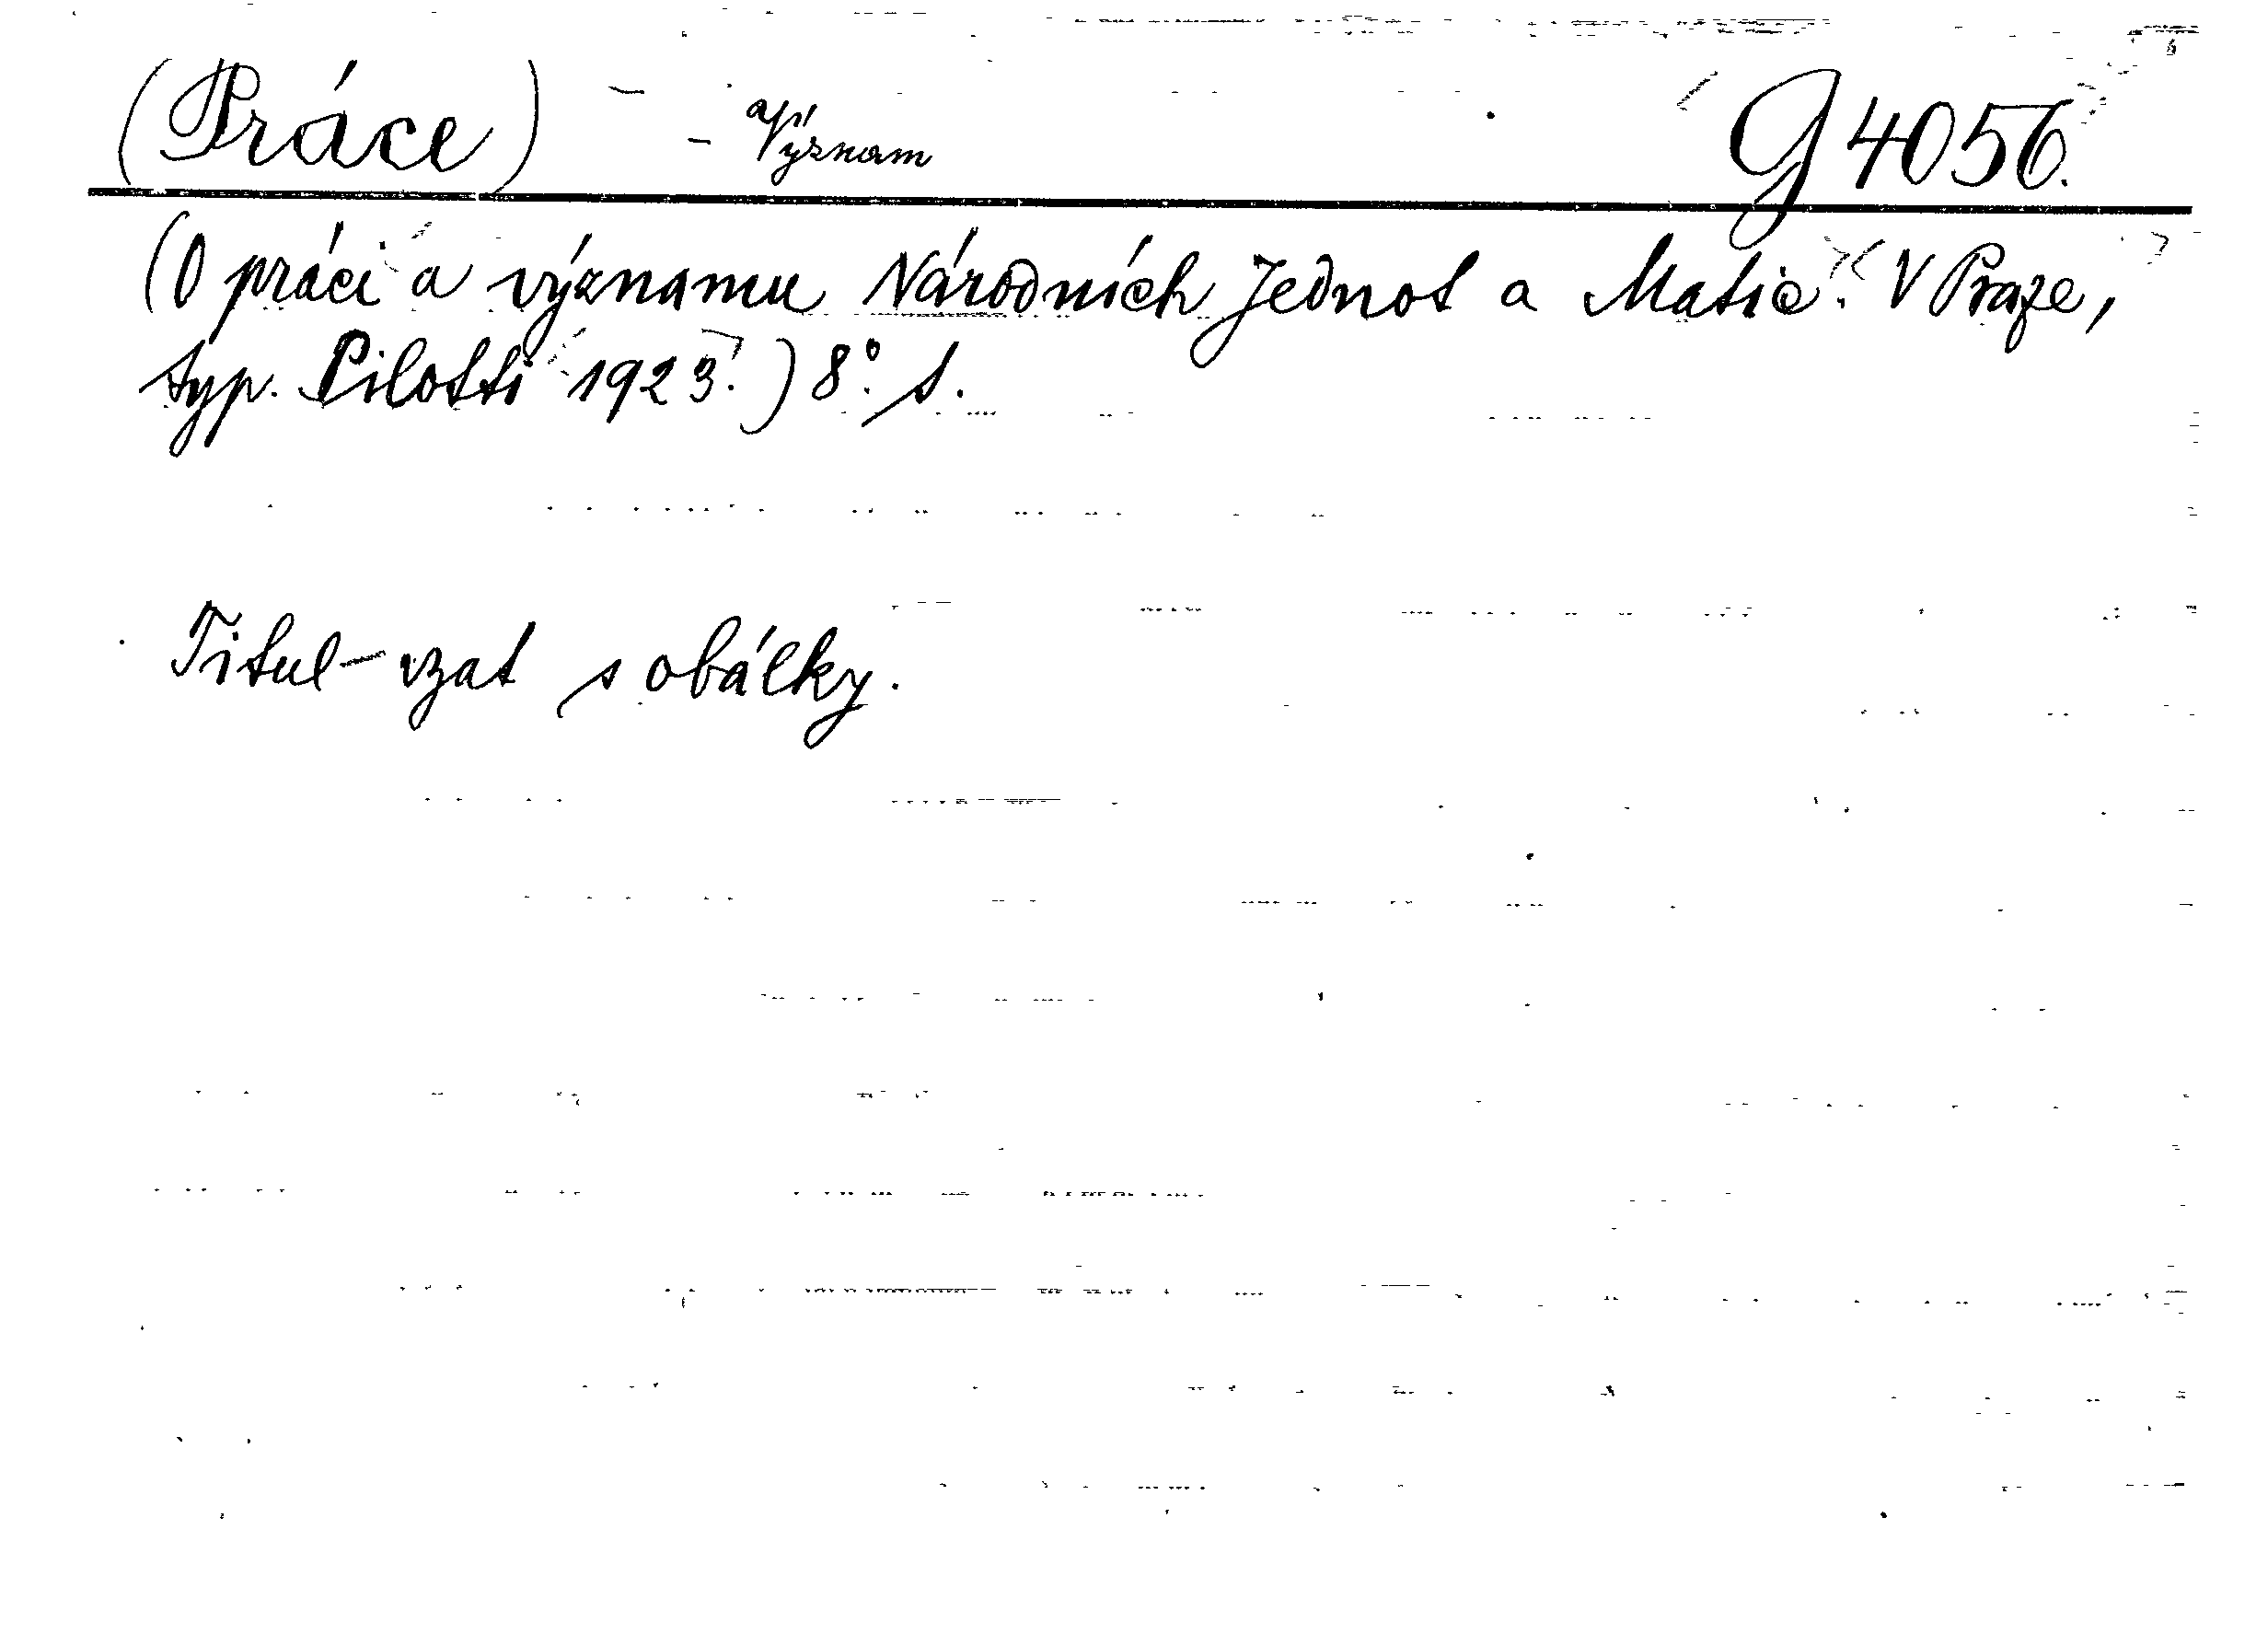 (Práce) - Význam G 4056.
(O práci a významu Národních Jednot a Matic. V Praze,
typ. Pilotti 1923.) 8°. s.
Titul - vzat s obálky.